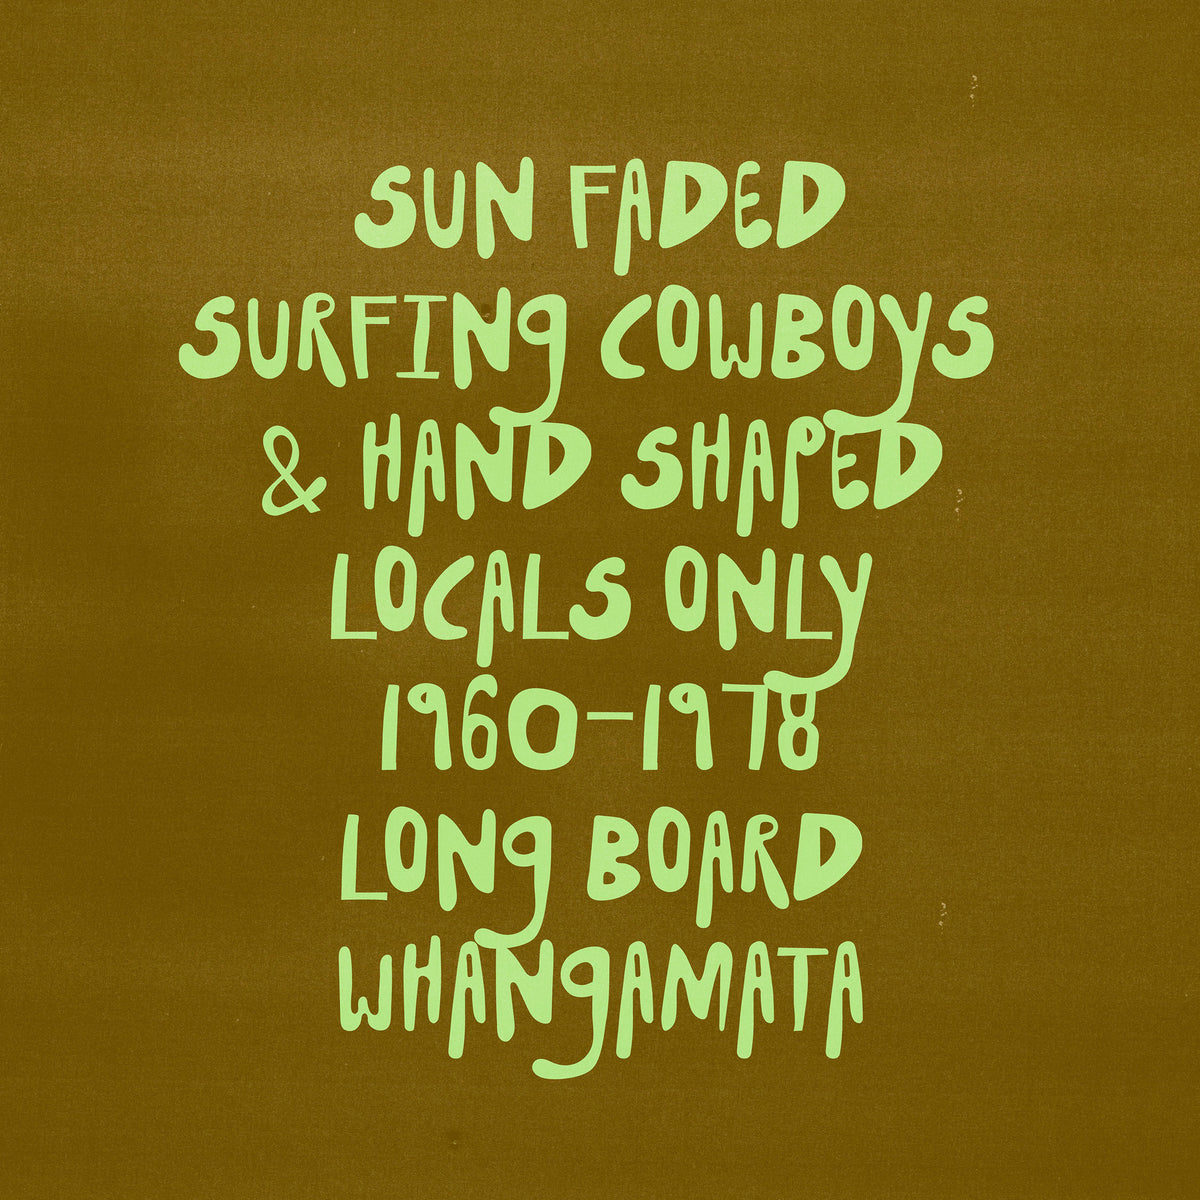 SUN FADED
SURFING COWBOYS
& HAND SHAPED
LOCALS ONLY
1960-1978
LONG BOARD
WHANGAMATA